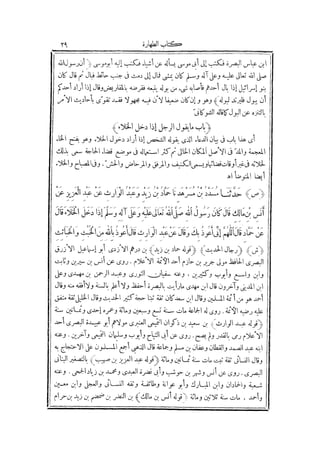 كتاب الطهارة ٢٩
ابن عباس البصرة فكتب إلى أبي موسى يسأله عن أشياء فكتب إليه أبو موسى أن رسول الله
صلى الله تعالى عليه وعلى آله وسلم كان يمشي فمال إلى دمث في جنب حائط فبال ثم قال كان
بنو إسرائيل إذا بال أحدهم فأصابه شيء من بوله يتبعه فقرضه بالمقاريض وقال إذا أراد أحدكم
أن يبول فليرتد لبوله) وهو وإن كان ضعيفا لأن فيه مجهولا فقد تقوى بأحاديث الأمر
بالتنزه عن البول كما قاله الشوكاني
(باب ما يقول الرجل إذا دخل الخلاء)
أي هذا باب في بيان الدعاء الذي يقوله الشخص إذا أراد دخول الخلاء. وهو بفتح الخاء
المعجمة والمد في الأصل المكان الخالي ثم كثر استعماله في موضع قضاء الحاجة سمي بذلك
لخلائه في غير أوقات قضائها ويسمى الكنيف والمرفق والمرحاض والحش. وفي المصباح والخلاء
أيضا المتوضأ اه
(ص) حدثنا مسدد بن مسرهد نا حماد بن زيد وعبد الوارث عن عبد العزيز عن
أنس بن مالك قال كان رسول الله صلى الله تعالى عليه وعلى آله وسلم إذا دخل الخلاء قال
عن حماد قال اللهم إني أعوذ بك وقال عن عبد الوارث قال أعوذ بالله من الخبث والخبائث
(ش) (رجال الحديث) (قوله حماد بن زيد) بن درهم الأزدي أبو إسماعيل الأزرق
البصري الحافظ مولى جرير بن حازم أحد الأئمة الأعلام. روى عن أنس بن سيرين وثابت
وابن واسع وأيوب وكثيرين. وعنه سفيان الثوري وعبد الرحمن بن مهدي وعلي
ابن المديني وآخرون قال ابن مهدي ما رأيت بالبصرة أحفظ ولا أعلم بالسنة ولا أفقه منه وقال
أحمد هو من أئمة المسلمين وقال ابن سعد كان ثقة ثبتا حجة كثير الحديث وقال الخليلي ثقة متفق
عليه رضيه الأئمة. روى له الجماعة مات سنة تسع وسبعين ومائة وعمره إحدى وثمانين سنة
(قوله عبد الوارث) بن سعيد بن ذكوان التميمي العنبري مولاهم أبو عبيدة البصري أحد
الأعلام رمي بالقدر ولم يصح. روى عن أبي التياح وأيوب وسليمان التيمي وآخرين. وعنه
ابنه عبد الصمد والقطان وعفان بن مسلم وجماعة قال الذهبي أجمع المسلمون على الاحتجاج به
وقال النسائي ثقة ثبت مات سنة ثمانين ومائة (قوله عبد العزيز بن صهيب) بالتصغير البناني
البصري. روى عن أنس وشهر بن حوشب وأبي نضرة العبدي ومحمد بن زياد الجمحي. وعنه
شعبة والحمادان وابن المبارك وأبو عوانة وطائفة وثقه النسائي والعجلي وابن معين
وأحمد. مات سنة ثلاثين ومائة (قوله أنس بن مالك) بن النضر بن ضمضم بن زيد بن حرام